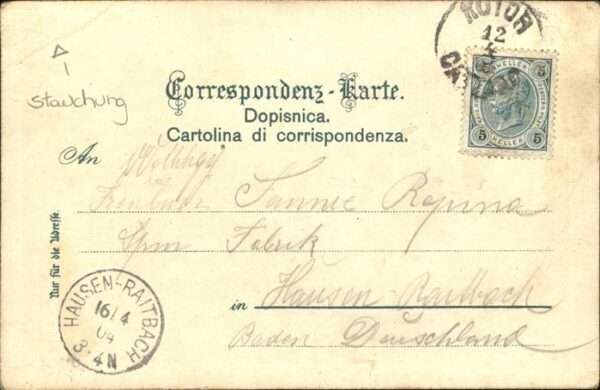 KOTOR
12
CATTARO
5 HELLER 5
Stauchung
Correspondenz-Karte.
Dopisnica.
Cartolina di corrispondenza.
An
Fräulein Fannie
Fabrik
in Hausen Raitbach
Baden Deutschland
Nur für die Adresse.
HAUSEN-RAITBACH
16/4
04
3-4N